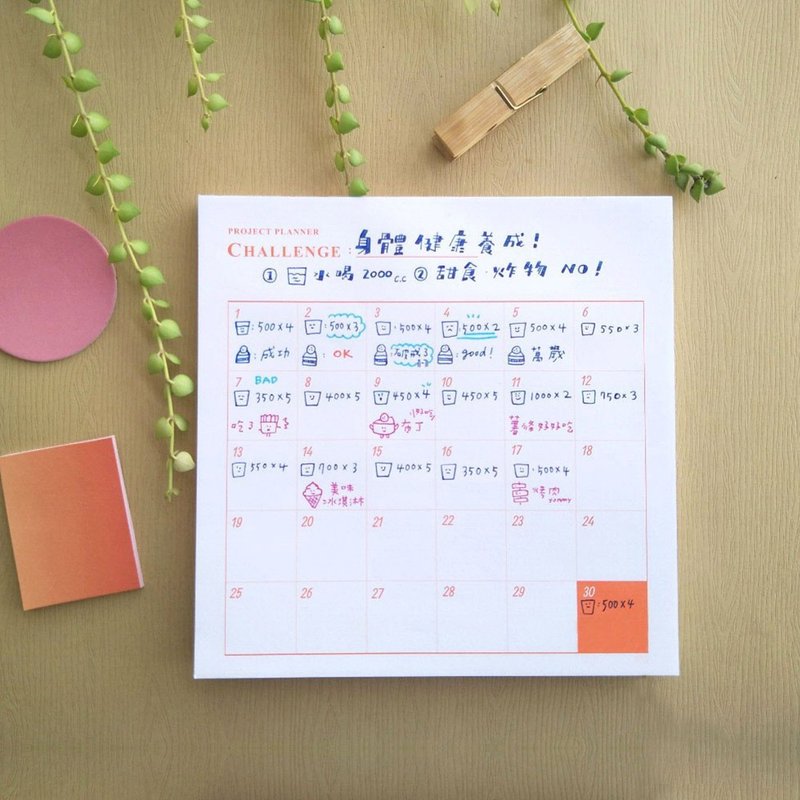 PROJECT PLANNER
CHALLENGE : 身體健康養成!
① 水喝 2000c.c ② 甜食·炸物 NO!
1 2 3 4 5 6
:500×4 :500×3 :500×4 :500×2 500×4 550×3
:成功 : OK : :good! 萬歲
7 BAD 8 9 10 11 12
350×5 400×5 450×4 450×5 1000×2 750×3
吃了 小好吃 布丁 薯條好好吃
13 14 15 16 17 18
550×4 700×3 400×5 350×5 :500×4
美味 冰淇淋 烤肉 yummy
19 20 21 22 23 24
25 26 27 28 29 30
:500×4